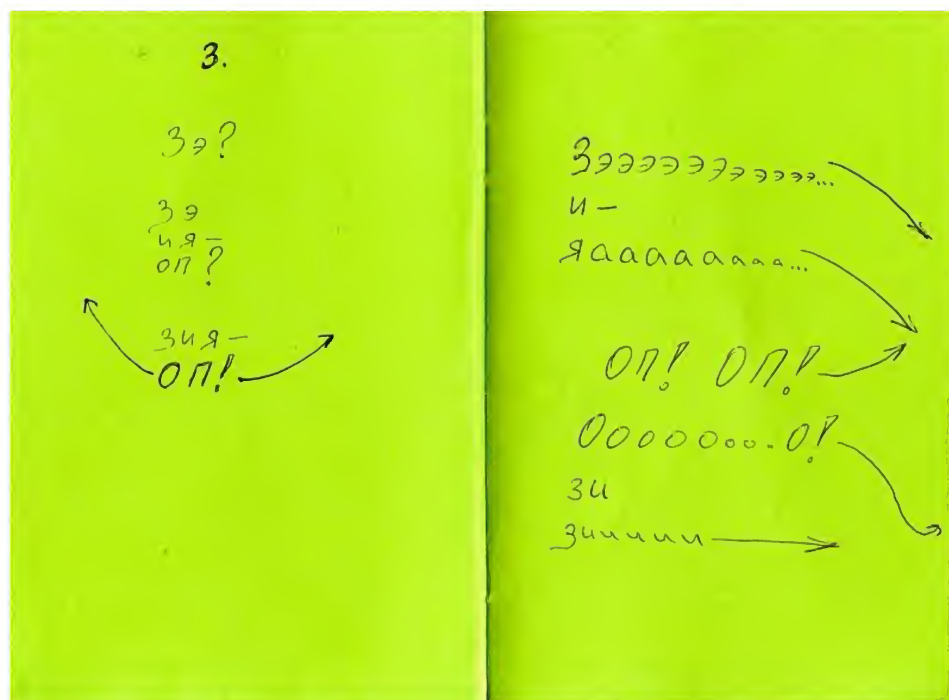 3.
Зэ?
Зэ
ия –
оп?
зия –
ОП!
Зээээээээээээ...
и –
Яааааааааа...
ОП! ОП!
Оооооооо. О!
зи
зииииии